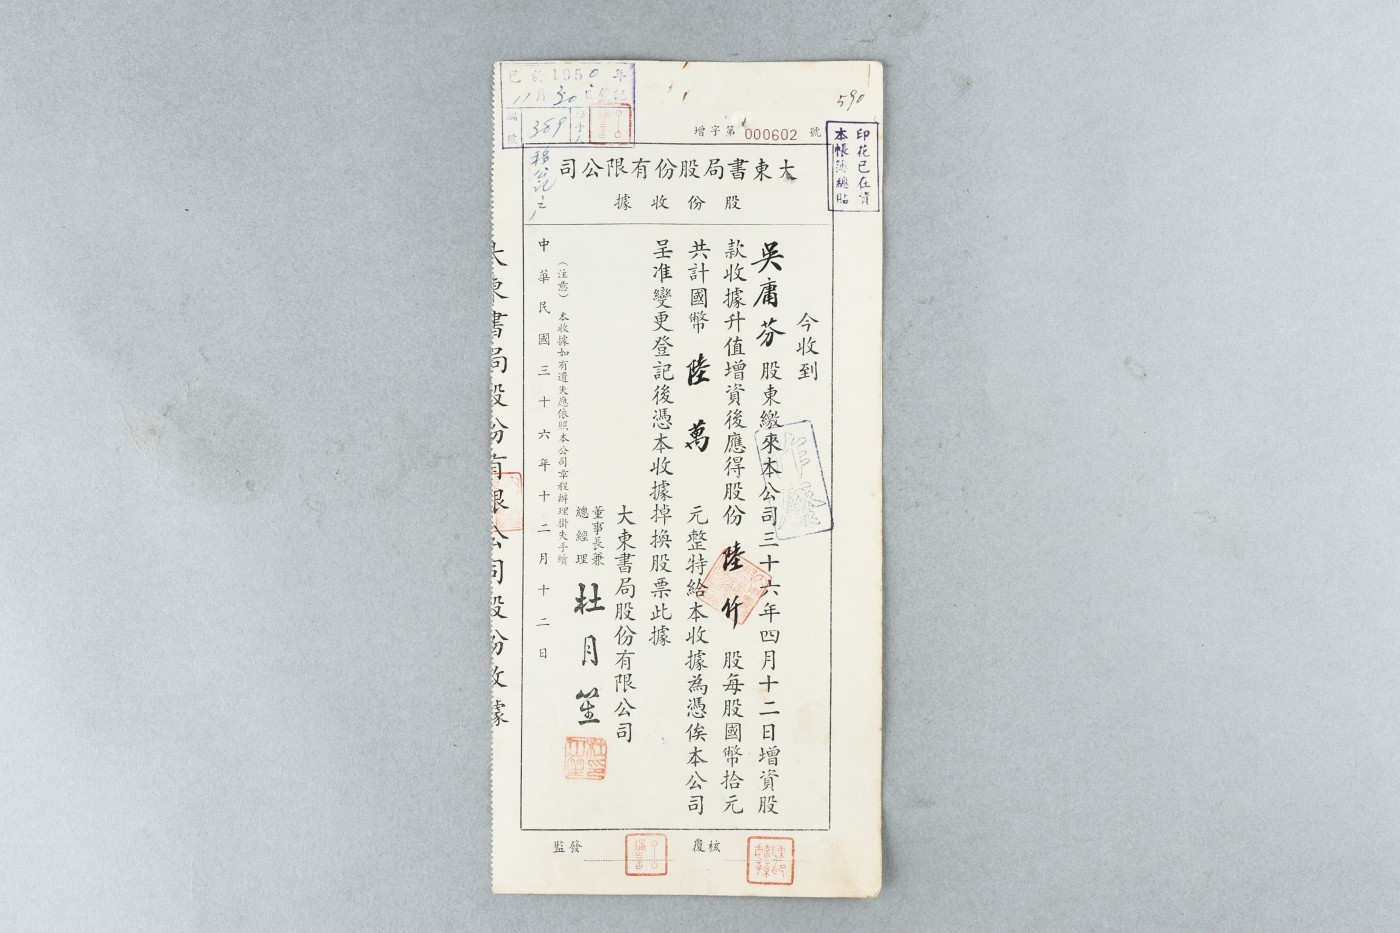 590
已於1950年
11月30日登記
編號 389 經手人
增字第 000602 號
印花已在資
本帳簿總貼
大東書局股份有限公司
股份收據
今收到
吳庸芬 股東繳來本公司三十六年四月十二日增資股
款收據升值增資後應得股份 陸仟 股每股國幣拾元
共計國幣 陸萬 元整特給本收據為憑俟本公司
呈准變更登記後憑本收據掉換股票此據
大東書局股份有限公司
董事長兼
總經理
杜月笙
(注意)本收據如有遺失應依照本公司章程辦理掛失手續
中華民國三十六年十二月十二日
大東書局股份有限公司股份收據
作廢
覆核
監發